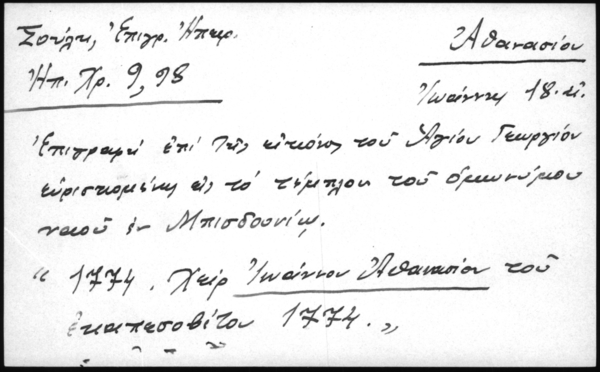 Σούλη, Ἐπιγρ. Ἠπειρ.
Ἠπ. Χρ. 9, 98
Ἀθανασίου
Ἰωάννης 18. αἰ.
Ἐπιγραφή ἐπί τῆς εἰκόνος τοῦ Ἁγίου Γεωργίου
εὑρισκομένης εἰς τό τέμπλον τοῦ ὁμωνύμου
ναοῦ ἐν Μπισδουνίῳ.
“ 1774. Χείρ Ἰωάννου Ἀθανασίου τοῦ
ἐκαπεσοβίτου 1774. „